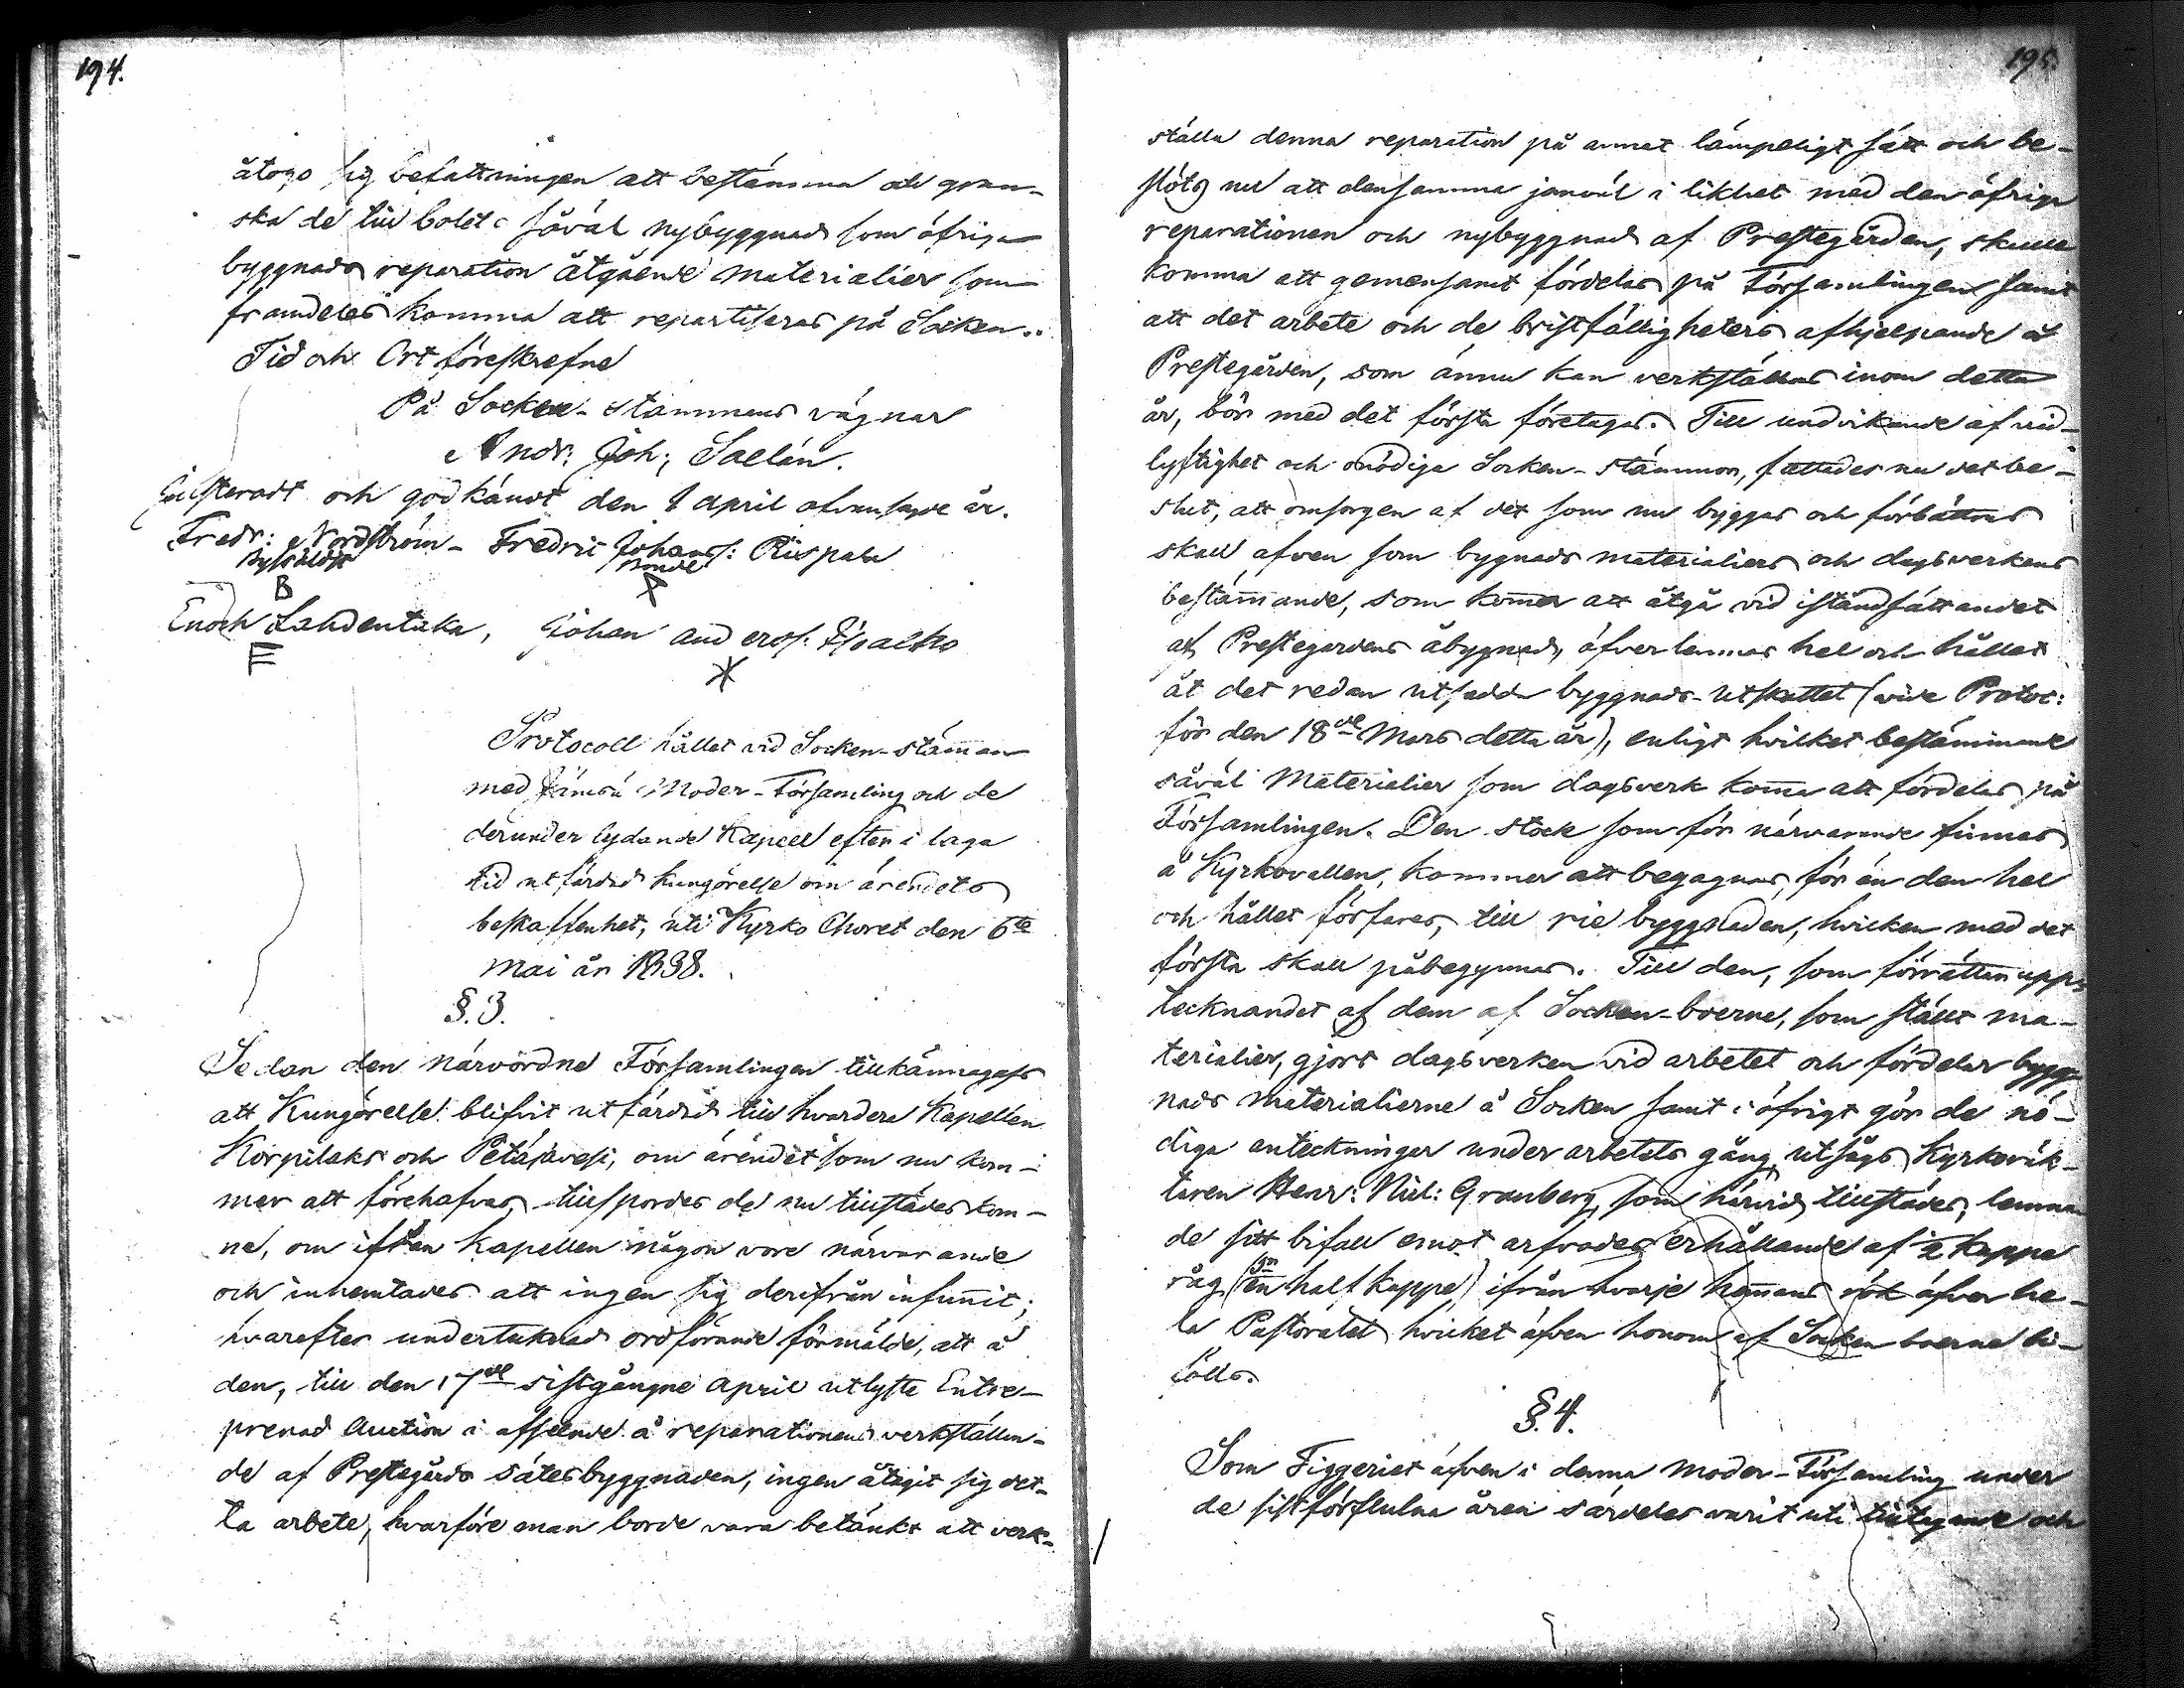 194.
åtogo sig befattningen att bestämma och gran-
ska de till bolets såväl nybyggnad som öfriga
byggnads reparation åtgående materialier som
framdeles komma att repartiseras på Socken..
Tid och Ort föreskrefne
På Socken-stämmans vägnar
Andr: Joh; Saelán.
Justeradt och godkändt den 8 April ofvansagde år.
Fredr: Nordström - Fredric Johanss: Riispala
Bonde
B X
Enoch Lahdentaka, Johan Anderss:
F X
Protocoll hållet vid Socken-stämman
med Jämsä Moder-Församling och de
derunder lydande Kapell efter i laga
tid utfärdad kungörelse om ärendets
beskaffenhet, uti Kyrko Choret den 6te
Mai år 1838.
§. 3.
Sedan den närvordne Församlingen tillkännagafs
att Kungörelse blifvit utfärdad till hvardera Kapellen
Korpilaks och Petäjävesi, om ärendet som nu kom-
mer att förehafvas, tillspordes de nu tillstädes kom-
ne, om ifrån Kapellen någon vore närvarande
och inhemtades att ingen sig derifrån infunnit;
hvarefter undertecknad ordförande förmälde, att å
den, till den 17de sistgångne April utlyste Entre-
prenad Auction i afseende å reparationens verkställan-
de af Prestegårds sätesbyggnaden, ingen åtagit sig det-
ta arbete, hvarföre man borde vara betänkt att verk-
195.
ställa denna reparation på annat lämpeligt sätt och be-
slöts nu att densamma jemväl i likhet med den öfriga
reparationen och nybyggnad af Prestegården, skulle
komma att gemensamt fördelas på Församlingen samt
att det arbete och de bristfälligheters afhjelpande å
Prestegården, som ännu kan verkställas inom detta
år, bör med det första företagas. Till undvikande af vid-
lyftighet och onödiga Socken-stämmor, fattades nu det be-
slut, att omsorgen af det som nu bygges och förbättras
skall äfven som bygnads materialiers och dagsverkens
bestämmande, som kommer att åtgå vid iståndsättandet
af Prestegårdens åbygnad, öfverlemnas hel och hållet
åt det redan utsedda byggnads-Utskottet (vide Protoc:
för den 18de Mars detta år), enligt hvilket bestämmande
såväl Materialier som dagsverk komma att fördelas på
Församlingen. Den stock som för närvarande finnes
å Kyrkovallen, kommer att begagnas, för än den hel
och hållet förfares, till rie byggnaden, hvilken med det
första skall påbegynnas. Till den, som förrättar upp-
tecknandet af dem af Socken-boerne, som ställt ma-
terialier, gjort dagsverken vid arbetet och fördelar bygg-
nads materialierne å Socken samt i öfrigt gör de nö-
diga anteckningar under arbetets gång, utsågs Kyrkoväk-
taren Henr: Niel: Granberg, som härvid tillstädes, lemna-
de sitt bifall emot arfvodes erhållande af ½ kappe
råg (en half kappe) ifrån hvarje hemmans rök öfver he-
la Pastoratet hvilket äfven honom af Socken boerne bi-
fölls.
§. 4.
Som Tiggeriet äfven i denna Moder-Församling under
de sistförflutna åren särdeles varit uti tilltagande och